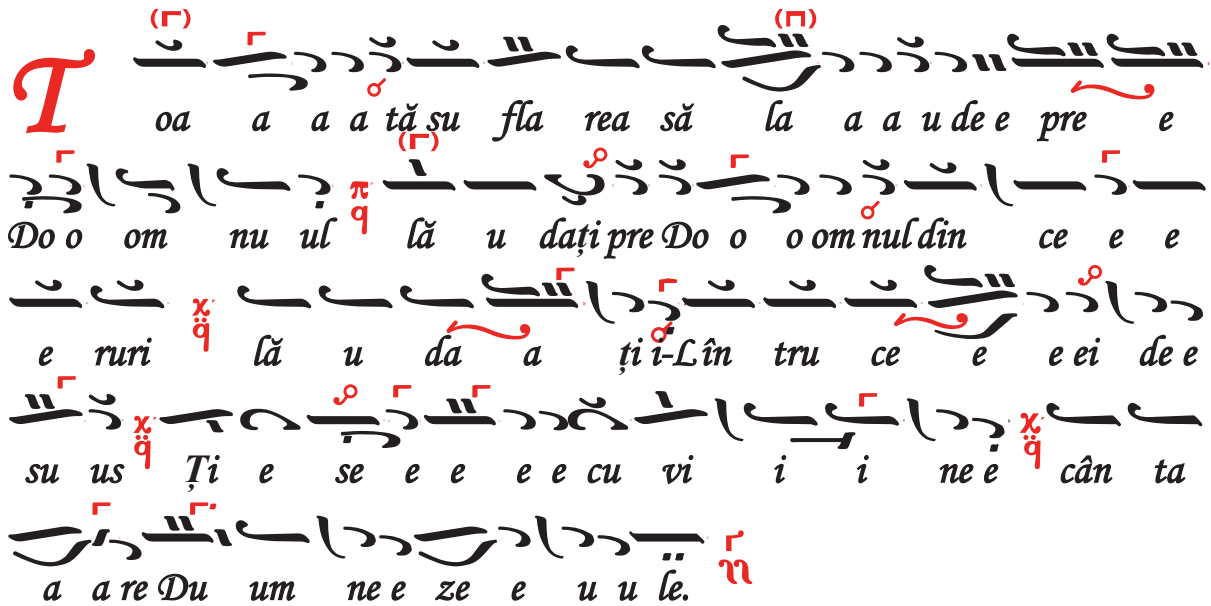 T oa a a a tă su fla rea să la a a u de e pre e
Do o om nu ul π q lă u dați pre Do o o om nul din ce e e
e ruri χ q̈ lă u da a ți i-L în tru ce e e ei de e
su us χ q̈ Ți e se e e e e cu vi i i ne e χ q̈ cân ta
a a re Du um ne e ze e u u le.